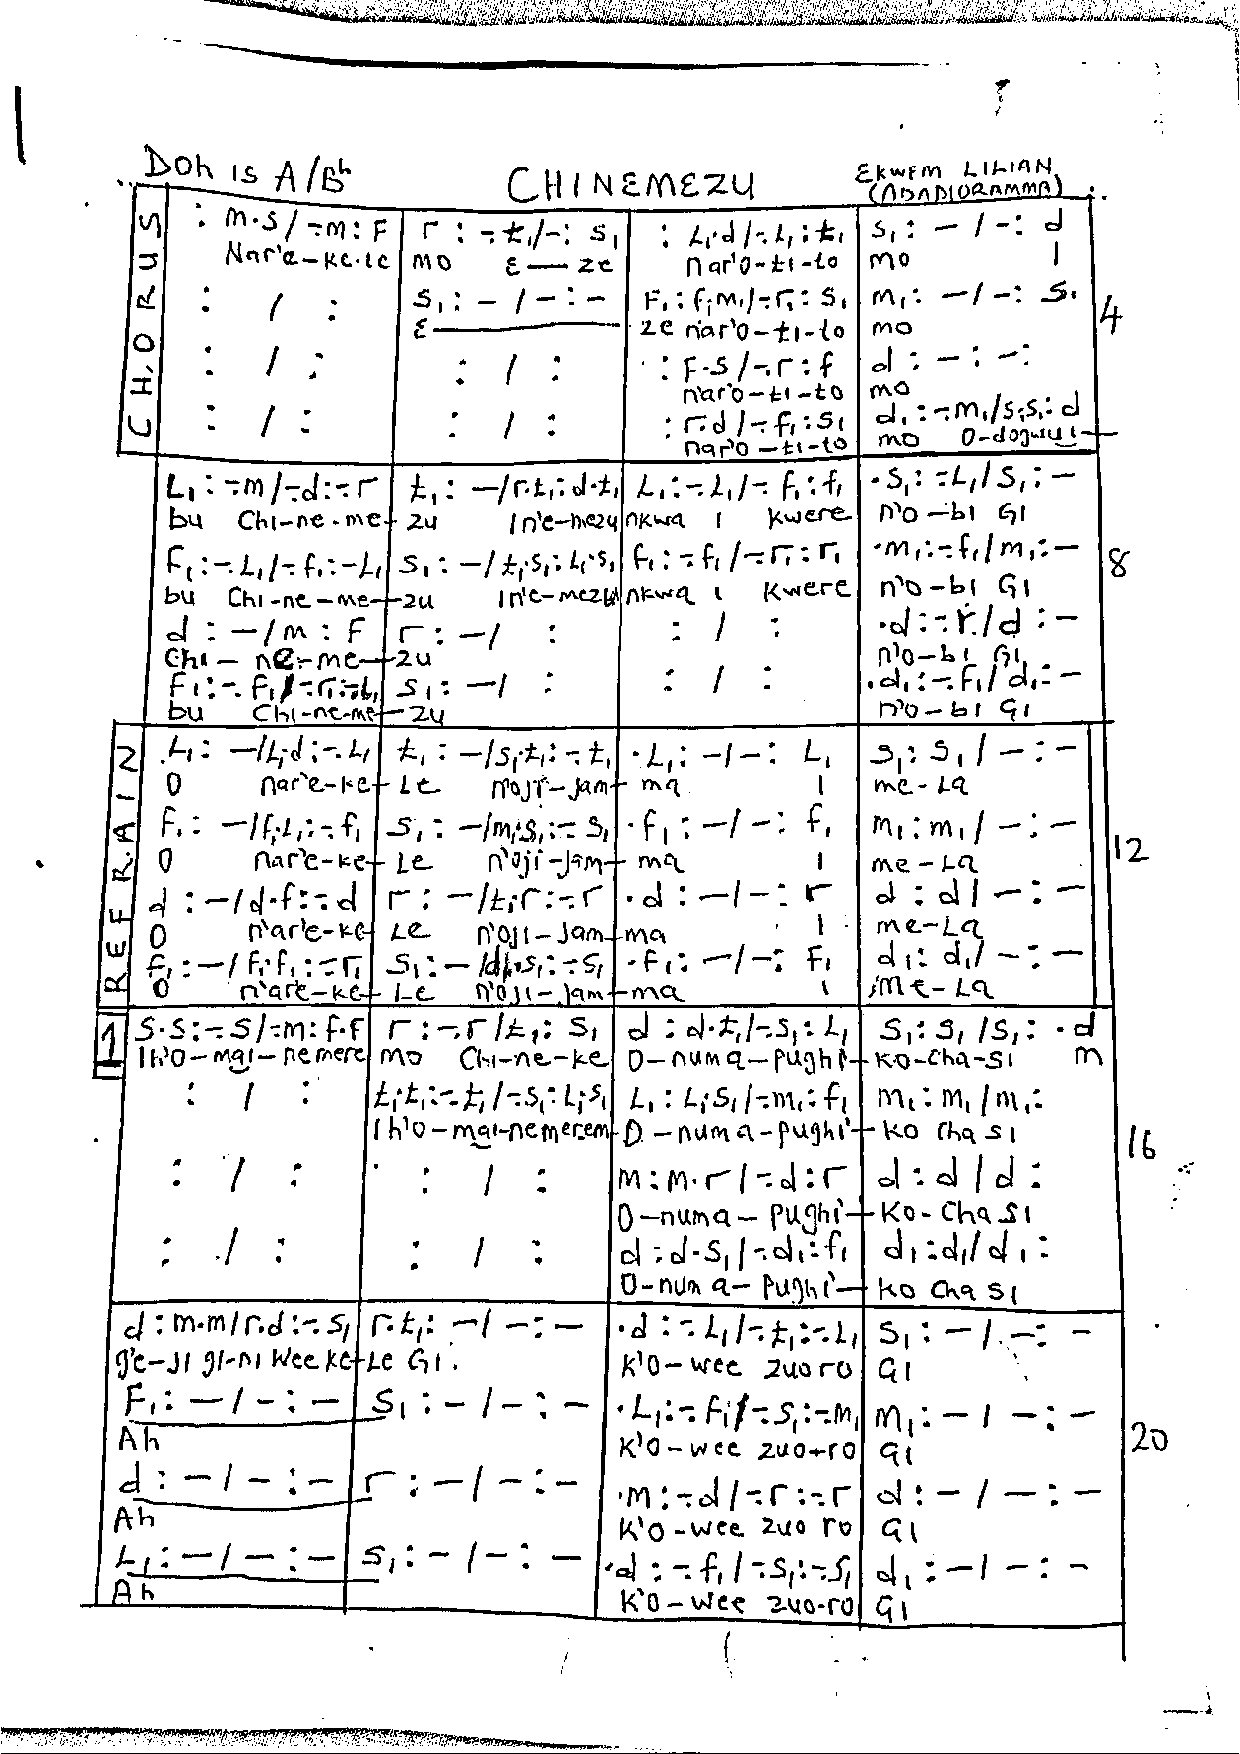 Doh is A/Bb
CHINEMEZU
EKWEM LILIAN
(ADADIORAMMA)
CHORUS
: m.s/-.m:f r:-.t₁/-:s₁ :l₁.d/-.l₁:t₁ s₁:-/-:d
Nar'e-ke-le mo E—ze nar'o-ti-to mo I
: / : s₁:-/-:- f₁:f₁.m₁/-.r₁:s₁ m₁:-/-:s₁
E— ze nar'o-ti-to mo
: / : : / : :f.s/-.r:f d:-:-:
nar'o-ti-to mo
: / : : / : :r.d/-.f₁:s₁ d₁:-.m₁/s₁.s₁:d
nar'o-ti-to mo O-dogwu I
4
L₁:-.m/-.d:-.r t₁:-/r.t₁:d.t₁ L₁:-.L₁/-.f₁:f₁ .s₁:-.L₁/s₁:-
bu Chi-ne-me-zu In'e-mezu nkwa I kwere n'o-bi GI
F₁:-.L₁/-.f₁:-.L₁ s₁:-/t₁.s₁:L₁.s₁ f₁:-.f₁/-.r₁:r₁ .m₁:-.f₁/m₁:-
bu Chi-ne-me-zu In'e-mezu nkwa I kwere n'o-bi GI
d:-/m:f r:-/ : : / : .d:-.r/d:-
Chi-ne-me-zu n'o-bi GI
F₁:-.f₁/-.r₁:-.L₁ s₁:-/ : : / : .d₁:-.f₁/d₁:-
bu Chi-ne-me-zu n'o-bi GI
8
REFRAIN
L₁:-/L₁.d:-.L₁ t₁:-/s₁.t₁:-.t₁ .L₁:-/-:L₁ s₁:s₁/-:-
O nar'e-ke-le n'oji-jam-ma I me-la
F₁:-/f₁.L₁:-.f₁ s₁:-/m₁.s₁:-.s₁ .f₁:-/-:f₁ m₁:m₁/-:-
O nar'e-ke-le n'oji-jam-ma I me-la
d:-/d.f:-.d r:-/t₁.r:-.r .d:-/-:r d:d/-:-
O n'ar'e-ke-le n'oji-jam-ma I me-la
F₁:-/f₁.f₁:-.r₁ s₁:-/d₁.s₁:-.s₁ .f₁:-/-:f₁ d₁:d₁/-:-
O n'are-ke-le n'oji-jam-ma I me-la
12
1
s.s:-.s/-.m:f.f r:-.r/t₁:s₁ d:d.t₁/-.s₁:L₁ s₁:s₁/s₁:.d
Ih'o-mai-nemere mo Chi-ne-ke O-numa-pughi-ko-cha-si m
: / : t₁.t₁:-.t₁/-.s₁:L₁.s₁ L₁:L₁.s₁/-.m₁:f₁ m₁:m₁/m₁:
Ih'o-mai-nemerem O-numa-pughi-ko cha si
: / : : / : m:m.r/-.d:r d:d/d:
O-numa-pughi-ko-cha si
: / : : / : d:d.s₁/-.d₁:f₁ d₁:d₁/d₁:
O-numa-pughi-ko cha si
16
d:m.m/r.d:-.s₁ r.t₁:-/-:- .d:-.L₁/-.t₁:-.L₁ s₁:-/-:-
g'e-ji gi-ni wee ke-le GI. k'o-wee zuo ro GI
F₁:-/-:- s₁:-/-:- .L₁:-.f₁/-.s₁:-.m₁ m₁:-/-:-
Ah k'o-wee zuo-ro GI
d:-/-:- r:-/-:- .m:-.d/-.r:-.r d:-/-:-
Ah k'o-wee zuo ro GI
L₁:-/-:- s₁:-/-:- .d:-.f₁/-.s₁:-.s₁ d₁:-/-:-
Ah k'o-wee zuo-ro GI
20